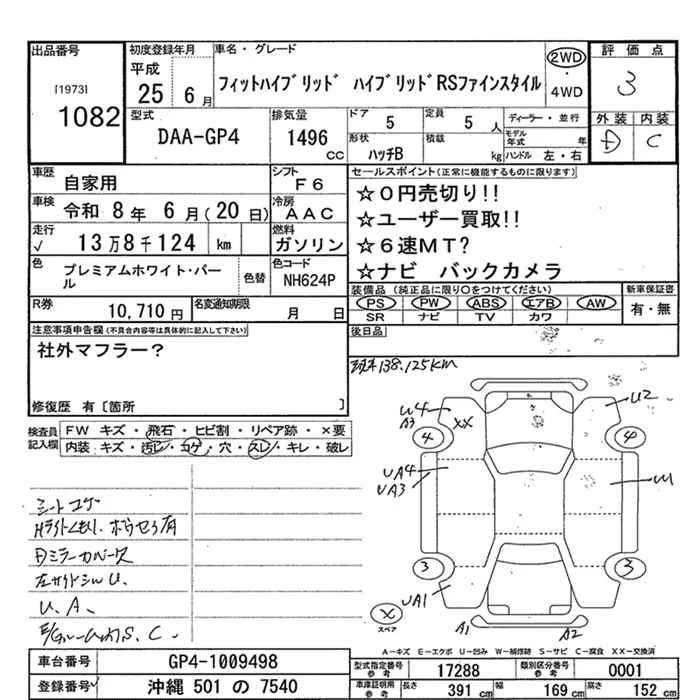 出品番号
[1973]
1082
初度登録年月
平成
25 6月
車名・グレード
フィットハイブリッド ハイブリッドRSファインスタイル
2WD
・
4WD
評価点
3
外装 内装
D C
型式
DAA-GP4
排気量
1496
cc
ドア
5
定員
5人
形状
ハッチB
積載
kg
ディーラー・並行
モデル年式 年
ハンドル 左・右
車歴
自家用
シフト
F6
車検
令和 8年 6月(20日)
冷房
AAC
走行
√ 13万8千124 km
燃料
ガソリン
色
プレミアムホワイト・パール
色替
色コード
NH624P
R券
10,710円
名変通知期限
月 日
セールスポイント(正常に機能するものに限ります)
☆0円売切り!!
☆ユーザー買取!!
☆6速MT?
☆ナビ バックカメラ
装備品(純正品に限り○をつけてください)
PS PW ABS エアB AW
SR ナビ TV カワ
新車保証書
有・無
後日品
注意事項申告欄(不具合内容等は具体的に記入して下さい)
社外マフラー?
修復歴 有[箇所 ]
現車138,125km
検査員記入欄
FW キズ・飛石・ヒビ割・リペア跡・×要
内装:キズ・汚レ・コゲ・穴・スレ・キレ・破レ
シートコゲ
Hライトくもり、ボウセウ有
Dミラーカバーヌケ
左サイドシルU、
U、A、
S、C、
U4
A3
XX
U2
4
4
UA4
UA3
3
3
UA1
×
スペア
A1
A2
A-キズ E-エクボ U-凹み W-補修跡 S-サビ C-腐食 XX-交換済
車台番号
GP4-1009498
登録番号
沖縄 501 の 7540
型式指定番号
参考
17288
類別区分番号
参考
0001
車庫証明用
参考
長さ
391 cm
幅
169 cm
高さ
152 cm